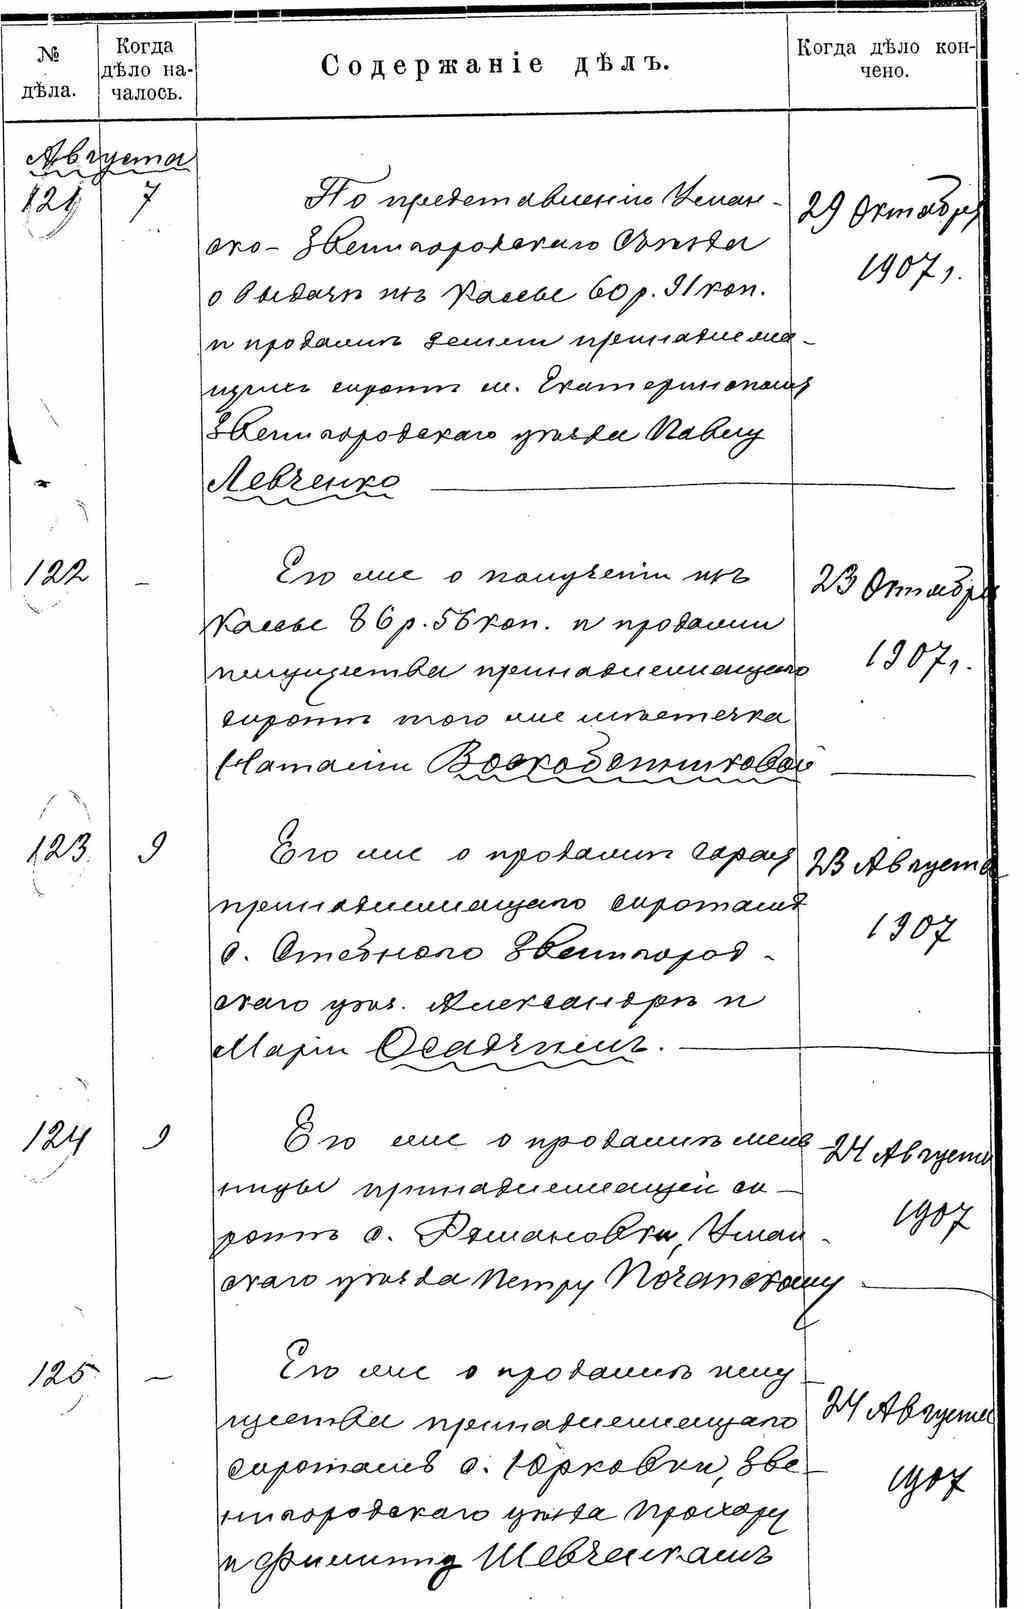 № дѣла.
Когда дѣло началось.
Содержаніе дѣлъ.
Когда дѣло кончено.
Августа
121 7 По представленію Уман-
ско-Звенигородскаго Съѣзда
о выдачѣ изъ кассы 60 р. 91 коп.
и продажѣ земли принадлежа-
щихъ сиротѣ м. Екатеринополя
Звенигородскаго уѣзда Павлу
Левченко
29 Октября
1907 г.
122 - Его же о полученіи изъ
кассы 86 р. 56 коп. и продажи
имущества принадлежащаго
сиротѣ того же мѣстечка
Наталіи Воскобойниковой
23 Октября
1907 г.
123 9 Его же о продажѣ сарая
принадлежащаго сиротамъ
с. Стебного Звенигород-
скаго уѣз. Александрѣ и
Маріи Осадчимъ.
23 Августа
1907
124 9 Его же о продажѣ мель
ницы принадлежащей си-
ротѣ с. Романовки, Уман-
скаго уѣзда Петру Почапскому
24 Августа
1907
125 - Его же о продажѣ иму-
щества принадлежащаго
сиротамъ с. Юрковки, Зве-
нигородскаго уѣзда Прохору
и Филиппу Шевченкамъ
24 Августа
1907